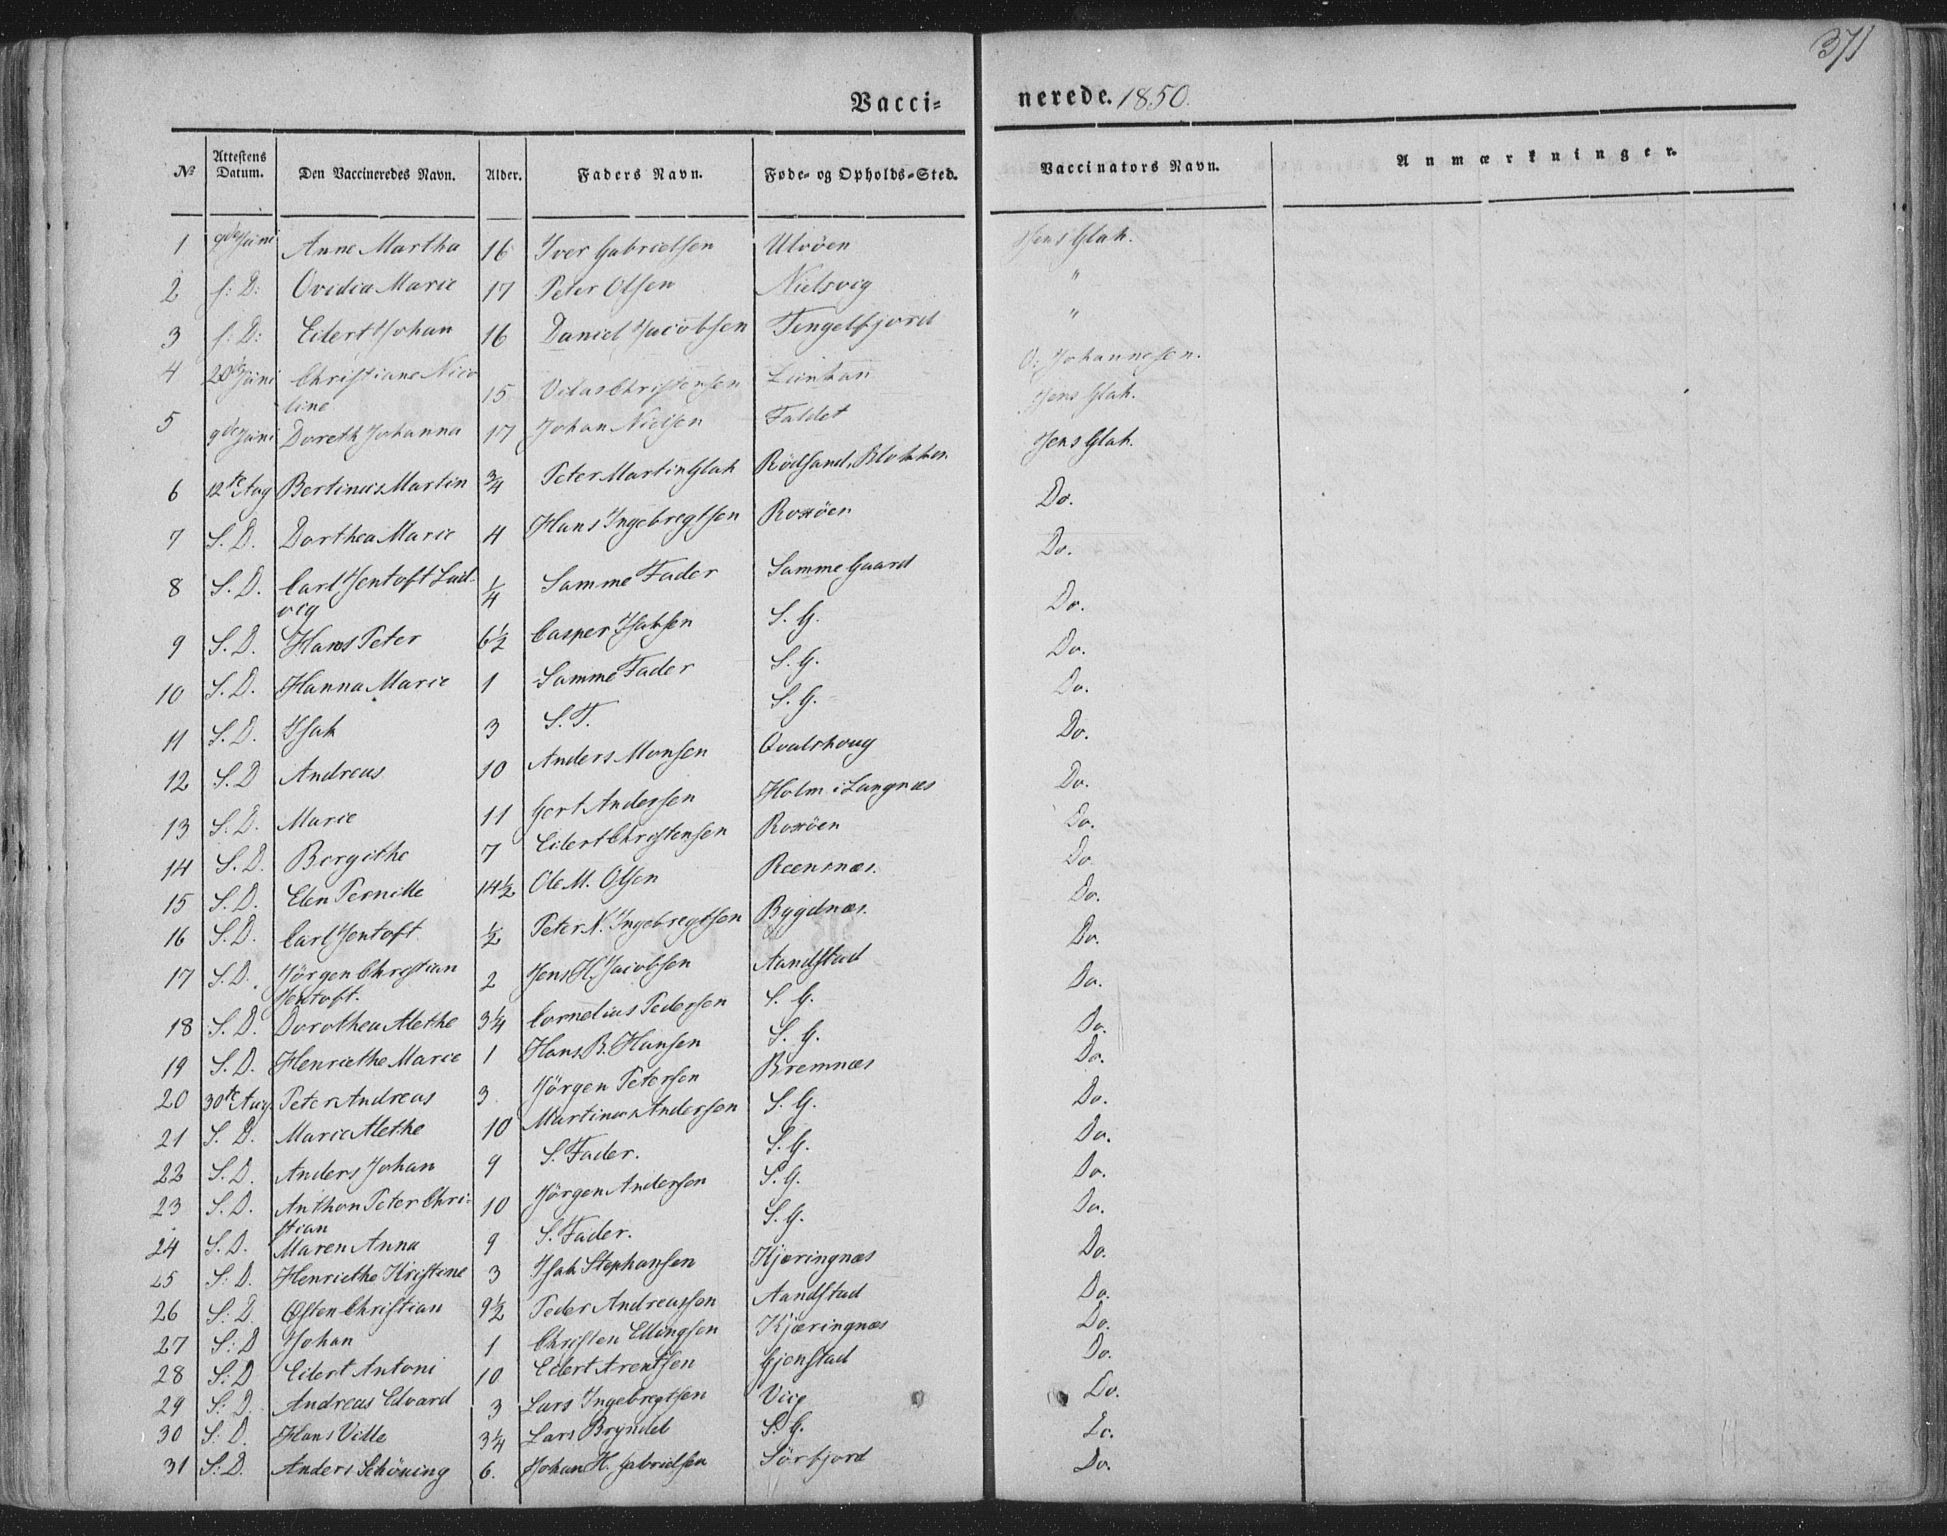 371
Vacci- nerede. 1850.
No Attestens Datum. Den Vaccineredes Navn. Alder. Faders Navn. Føde- og Opholds-Sted. Vaccinators Navn. Anmærkninger.
1 9de Juni Anne Martha 16 Iver Gabrielsen Ulvöen Jens Glah.
2 s: D: Ovidia Marie 17 Peter Olsen Nielsvig "
3 s: D: Eilert Johan 16 Daniel Jacobsen Tengelfjord "
4 20de Juni Christiane Nico 15 Christensen O. Johannesen.
line
Jens Glah.
5 9de Juni Doreth Johanna 17 Johan Nielsen Faldet Jens Glah.
6 12te Aug Bertinus Martin 3/4 Peter Martin Glah Rödsand, Blokken Do.
7 S. D. Dorthea Marie 4 Hans Ingebregtsen Roxöen Do.
8 S. D. Carl Jentoft Lud- 1/4 Samme Fader Samme Gaard Do.
vig
9 S. D. Hans Peter 6 1/2 Casper Isaksen S. G. Do.
10 S. D. Hanna Marie 1 Samme Fader S. G. Do.
11 S. D. Isak 3 S. F. S. G. Do.
12 S. D Andreas 10 Anders Monsen Qvalshoug Do.
13 S. D. Marie 11 Gert Andersen Holm i Langnæs Do.
14 S. D. Bergithe 7 Eilert Christensen Roxöen Do
15 S. D. Elen Pernille 14 1/2 Ole M. Olsen Reensnæs. Do.
16 S. D. Carl Jentoft 1/2 Peter N. Ingebregtsen Bygdnæs. Do.
17 S. D. Jörgen Christian 2 Jens H. Jacobsen Aandstad Do.
Jentoft.
18 S. D. Dorothea Alethe 3 1/4 Cornelius Pedersen S. G. Do.
19 S. D. Henriethe Marie 1 Hans B. Hansen S. G. Do.
20 30te Aug. Peter Andreas 3. Jörgen Petersen Bremnæs Do.
21 S. D. Marie Alethe 10 Martinus Andersen S. G. Do.
22 S. D. Anders Johan 9 S. Fader. S. G. Do.
23 S. D. Anthon Peter Chri- 10 Jörgen Andersen S. G. Do.
stian
24 S. D. Maren Anna 9 S. Fader. S. G. Do.
25 S: D. Henriethe Kristine 3 Isak Stephansen Kjæringnæs Do.
26 S: D. Østen Christian 9 1/2 Peder Andreassen Aandstad Do.
27 S: D Johan 1 Christen Ellingsen Kjæringnæs Do.
28 S: D Eilert Antoni 10 Eilert Arentsen Gjenstad Do.
29 S: D. Andreas Edvard 3 Lars Ingebregtsen Viig Do.
30 S: D. Hans Ville 3 1/4 Lars Bryndel S. G. Do.
31 S: D. Anders Schöning 6. Johan H. Gabrielsen Sörfjord Do.